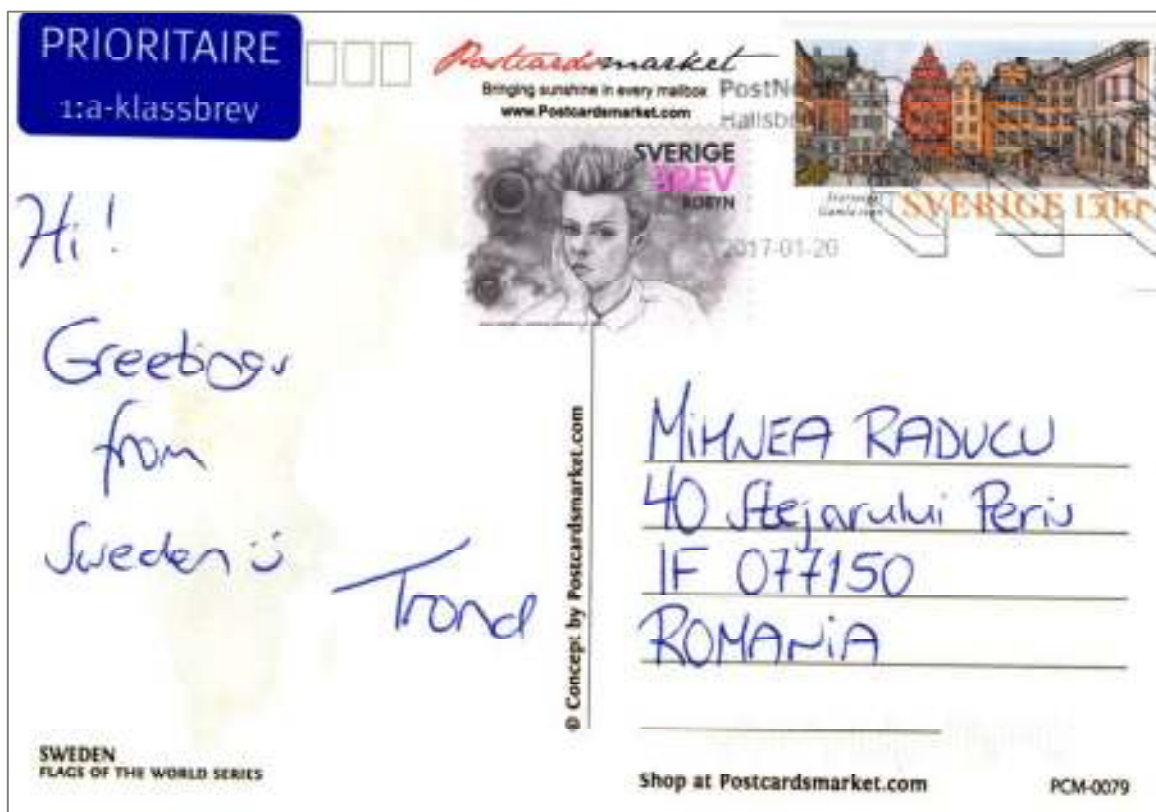 PRIORITAIRE
1:a-klassbrev
Postcardsmarket
Bringing sunshine in every mailbox
www.Postcardsmarket.com
SVERIGE
BREV
ROBYN
SVERIGE 15 kr
2017-01-20
Hi!
Greetings
from
Sweden
Trond
© Concept by Postcardsmarket.com
MIHNEA RADUCU
40 Stejarului Peris
IF 077150
ROMANIA
SWEDEN
FLAGS OF THE WORLD SERIES
Shop at Postcardsmarket.com
PCM-0079